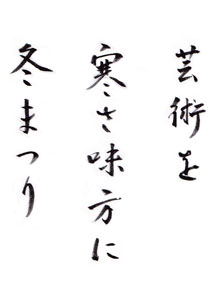 芸術を
寒さ味方に
冬まつり